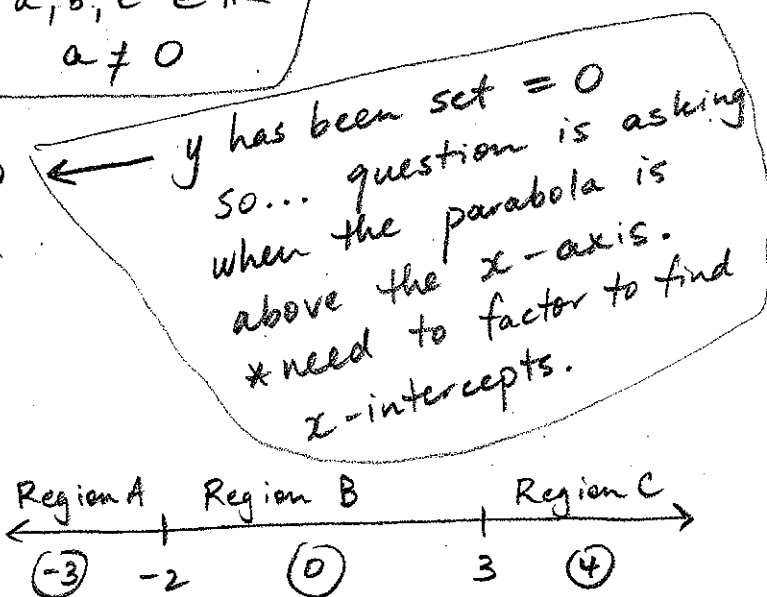 a, b, c ∈
a ≠ 0
← y has been set = 0
so... question is asking
when the parabola is
above the x-axis.
*need to factor to find
x-intercepts.
Region A Region B Region C
-3 -2 0 3 4